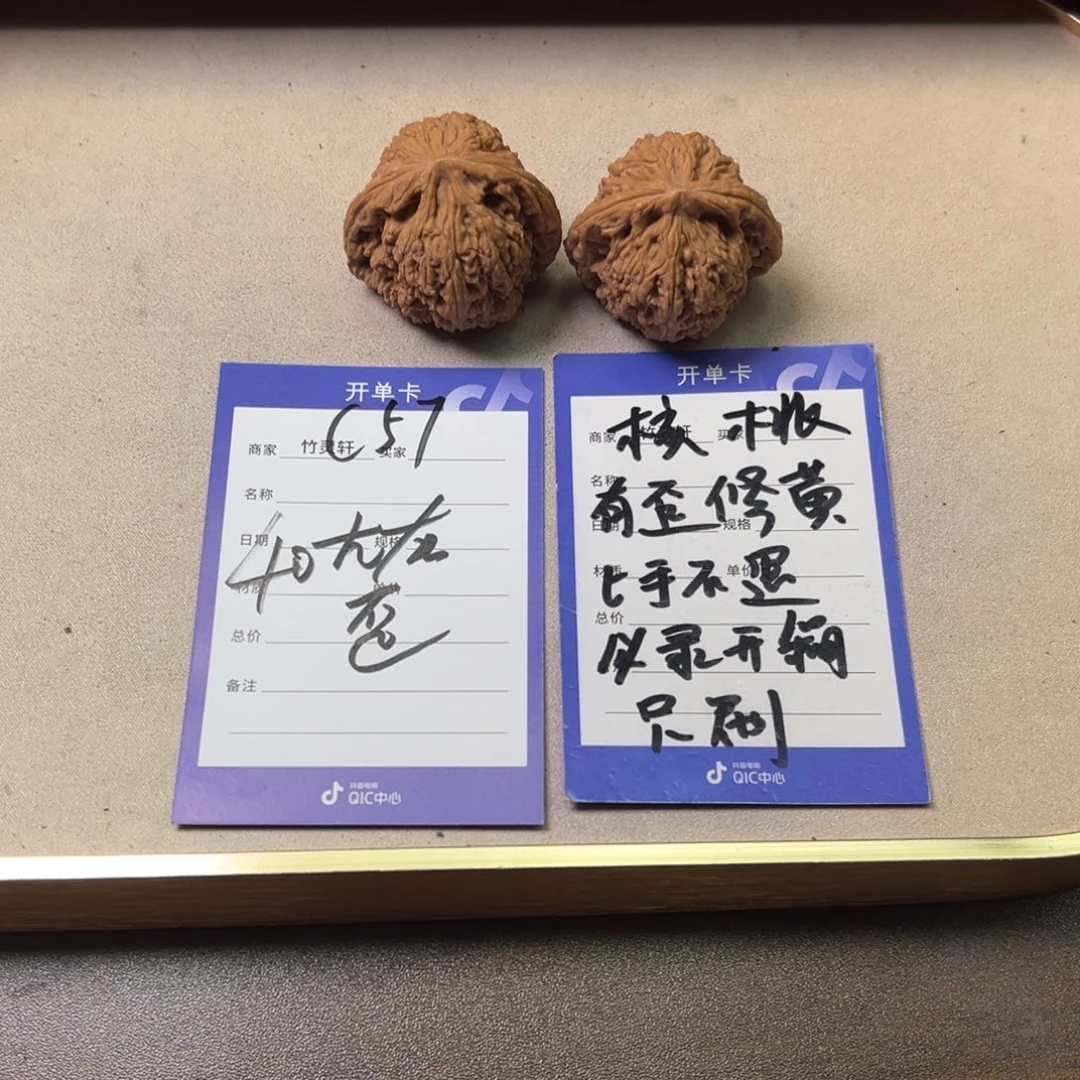 开单卡
C57
商家 竹灵轩 买家
名称
日期 规格
40 左右
歪
总价
备注
抖音电商
QIC中心
开单卡
商家 竹灵轩 买家
核桃
名称
有歪修黄
日期 规格
材质 单价
上手不退
总价
必录开箱
只刷
抖音电商
QIC中心